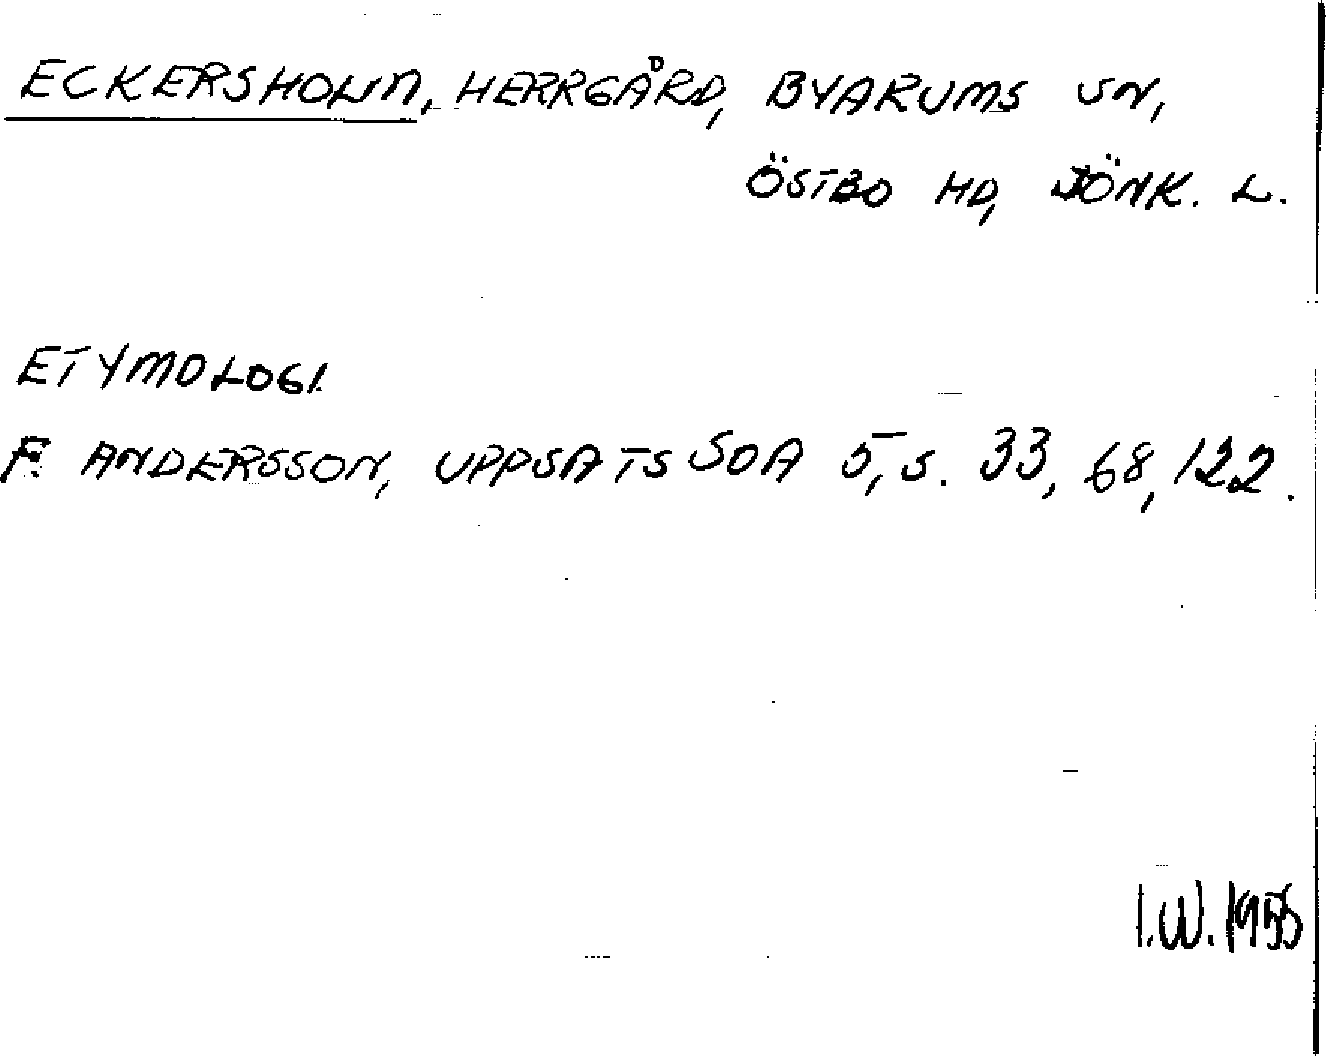 ECKERSHOLM, HERRGÅRD, BYARUMS SN,
ÖSTBO HD, JÖNK. L.
ETYMOLOGI.
F. ANDERSSON, UPPSATS SOA 5, S. 33, 68, 122.
I.W. 1955